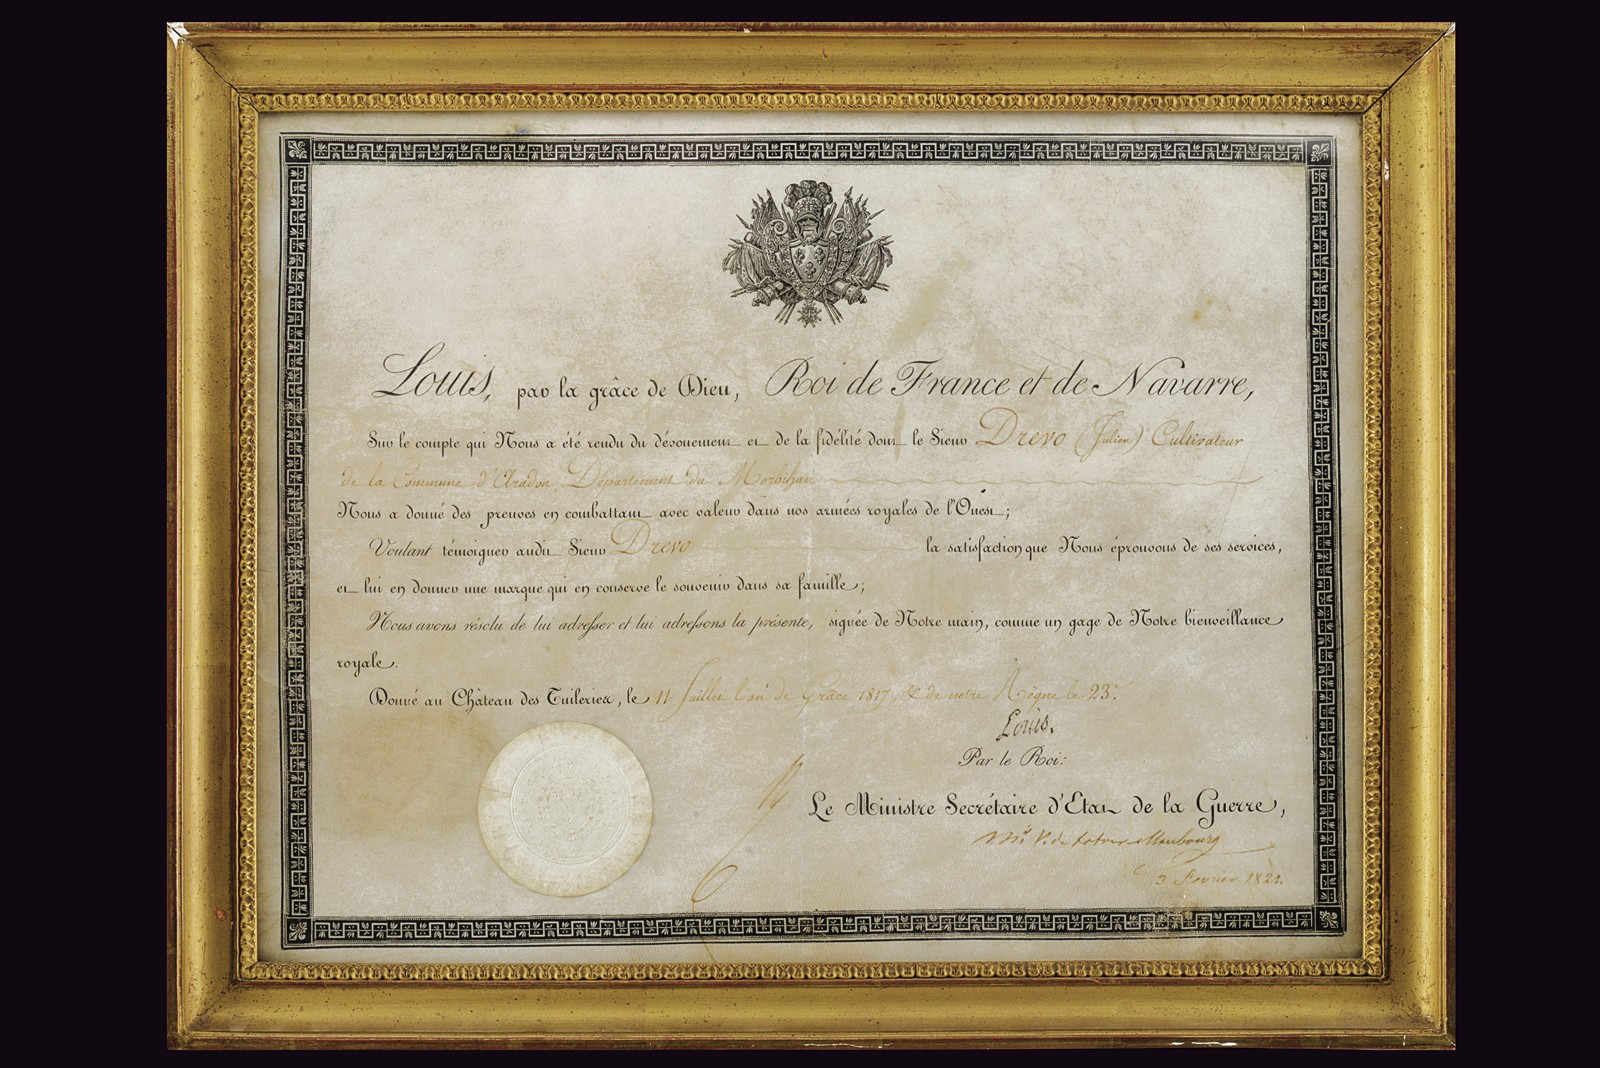 Louis, par la grâce de Dieu, Roi de France et de Navarre,
Sur le compte qui Nous a été rendu du dévouement et de la fidélité dont le Sieur Drevo (Julien) Cultivateur
de la Commune d'Aradon, Département du Morbihan
Nous a donné des preuves en combattant avec valeur dans nos armées royales de l'Ouest;
Voulant témoigner audit Sieur Drevo la satisfaction que Nous éprouvons de ses services,
et lui en donner une marque qui en conserve le souvenir dans sa famille;
Nous avons résolu de lui adresser et lui adressons la présente, signée de Notre main, comme un gage de Notre bienveillance
royale.
Donné au Château des Tuileries, le 11 Juillet l'an de Grâce 1817, & de notre Règne le 23.e
Louis.
Par le Roi:
Le Ministre Secrétaire d'Etat de la Guerre,
Mis V. de latour Maubourg
3 Fevrier 1821.